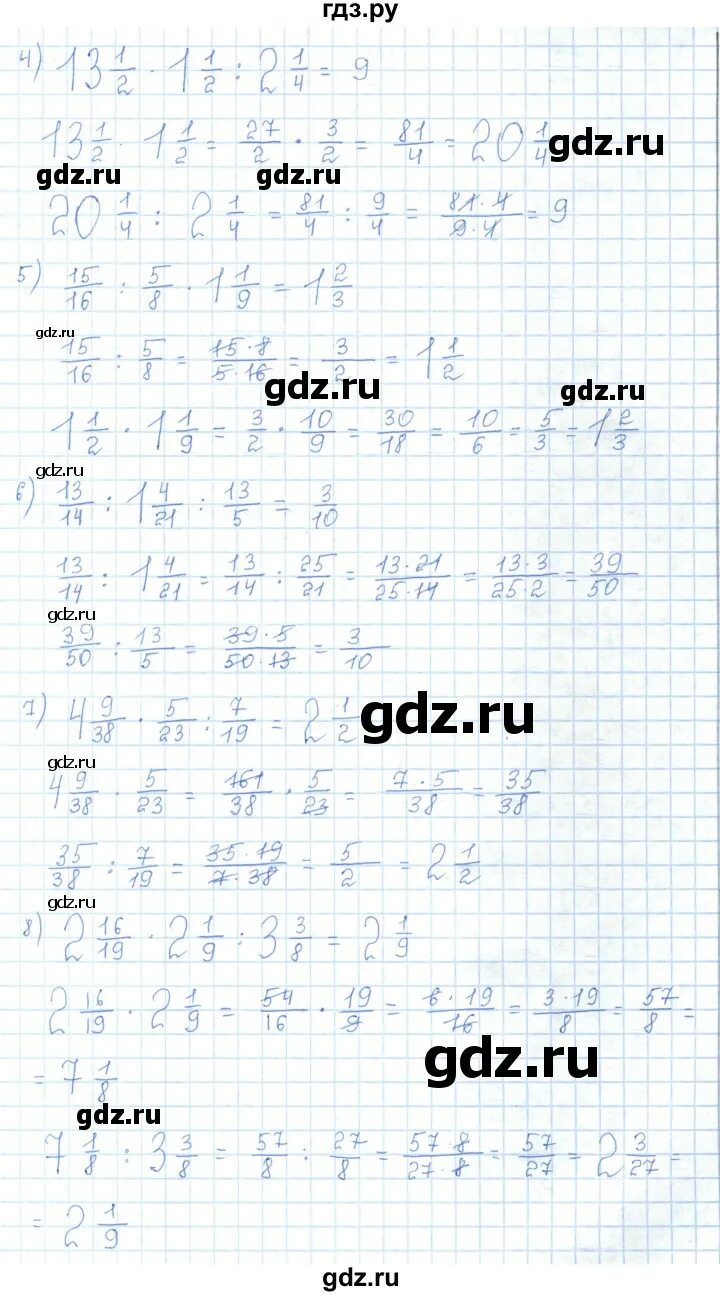 гдз.ру
4) 13 1/2 · 1 1/2 : 2 1/4 = 9
13 1/2 · 1 1/2 = 27/2 · 3/2 = 81/4 = 20 1/4
gdz.ru
gdz.ru gdz.ru
20 1/4 : 2 1/4 = 81/4 : 9/4 = 81·4/9·4 = 9
5) 15/16 : 5/8 · 1 1/9 = 1 2/3
gdz.ru
15/16 : 5/8 = 15·8/5·16 = 3/2 = 1 1/2
gdz.ru gdz.ru
1 1/2 · 1 1/9 = 3/2 · 10/9 = 30/18 = 10/6 = 5/3 = 1 2/3
gdz.ru
6) 13/14 : 1 4/21 : 13/5 = 3/10
13/14 : 1 4/21 = 13/14 : 25/21 = 13·21/25·14 = 13·3/25·2 = 39/50
gdz.ru
39/50 : 13/5 = 39·5/50·13 = 3/10
7) 4 9/38 · 5/23 : 7/19 = 2 1/2
gdz.ru
gdz.ru
4 9/38 · 5/23 = 161/38 · 5/23 = 7·5/38 = 35/38
35/38 : 7/19 = 35·19/7·38 = 5/2 = 2 1/2
gdz.ru
8) 2 16/19 · 2 1/9 : 3 3/8 = 2 1/9
2 16/19 · 2 1/9 = 54/16 · 19/9 = 6·19/16 = 3·19/8 = 57/8 =
= 7 1/8
gdz.ru
gdz.ru
7 1/8 : 3 3/8 = 57/8 : 27/8 = 57·8/27·8 = 57/27 = 2 3/27 =
= 2 1/9
gdz.ru